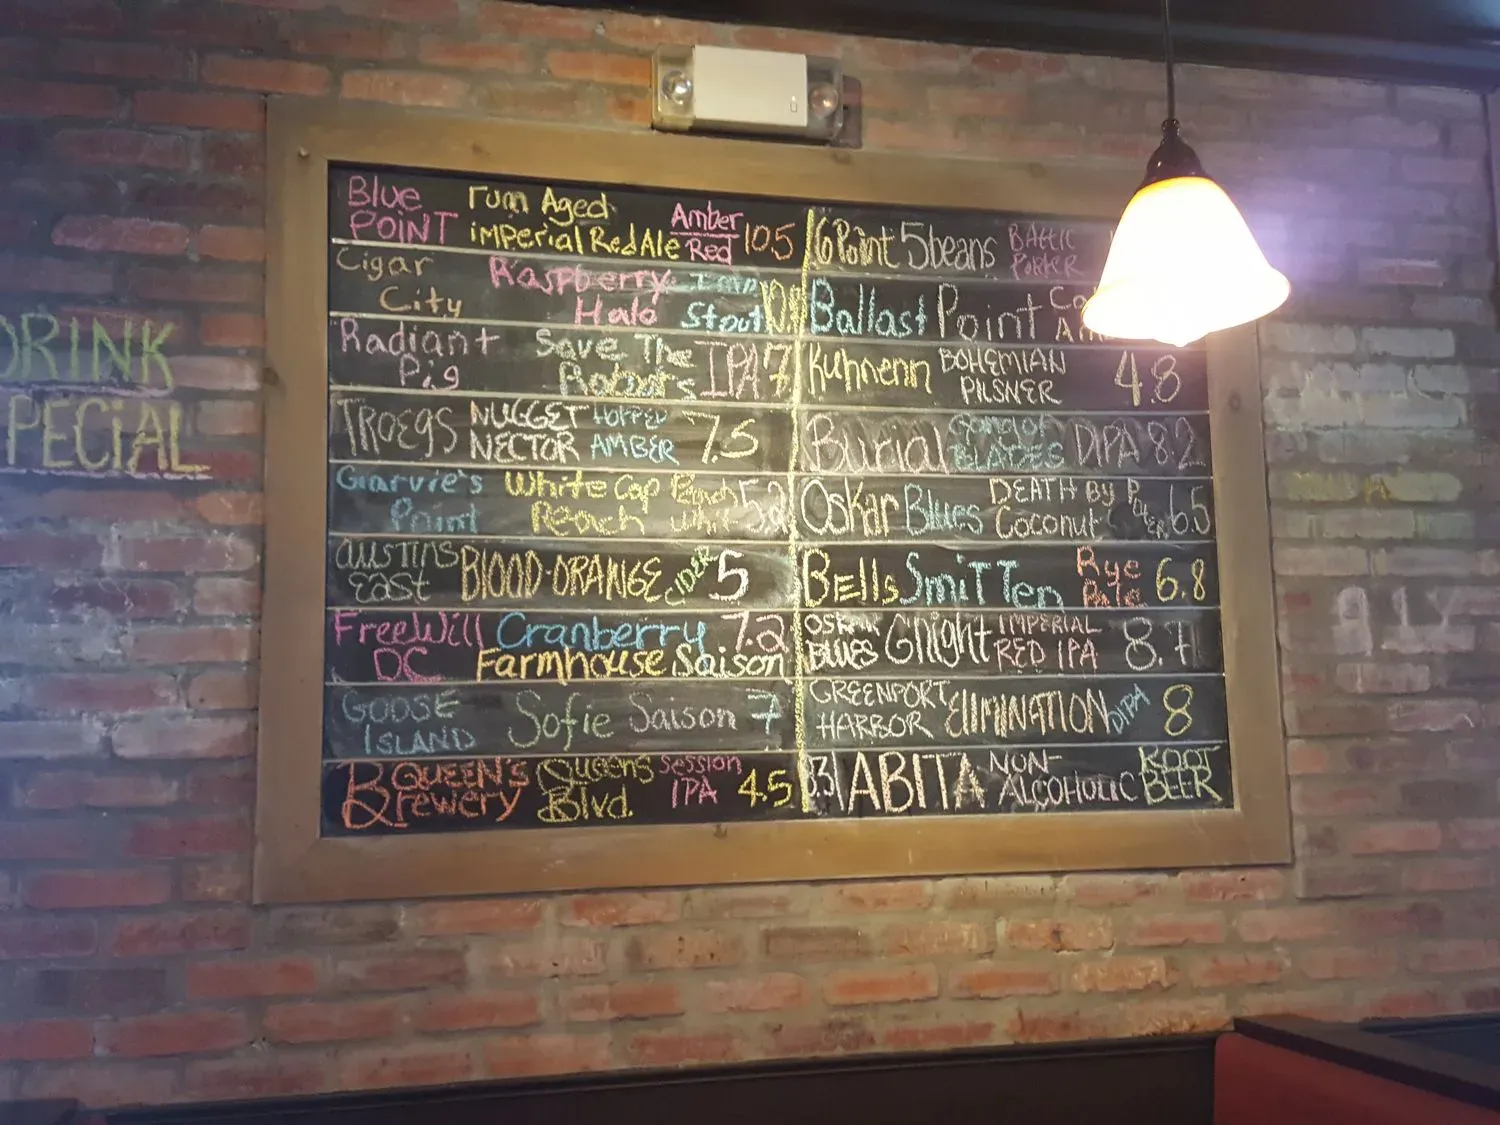 DRINK
SPECIAL
Blue rum Aged Amber
POINT imperial Red Ale Red 10.5
Cigar Raspberry Imp
City Halo Stout
Radiant Save The IPA 7
Pig Robots
TROEGS NUGGET HOPPED 7.5
NECTOR AMBER
Garvie's White Cap Peach 5.2
Point Reach Whit
AUSTIN'S BLOOD-ORANGE CIDER 5
EAST
FreeWill Cranberry 7.2
DC Farmhouse Saison
GOOSE Sofie Saison 7
ISLAND
QUEEN'S Queens Session 4.5
Brewery Blvd. IPA
6 Point 5 beans BALTIC
PORTER
Ballast Point
Kuhnenn BOHEMIAN 4.8
PILSNER
Burial BLADES DIPA 8.2
Oskar Blues DEATH By 6.5
Coconut
BELLS SmiTTen Rye 6.8
Pale
OSKAR G'Night IMPERIAL 8.7
BLUES RED IPA
GREENPORT ElIMINATION DIPA 8
HARBOR
ABITA NON- ROOT
ALCOHOLIC BEER